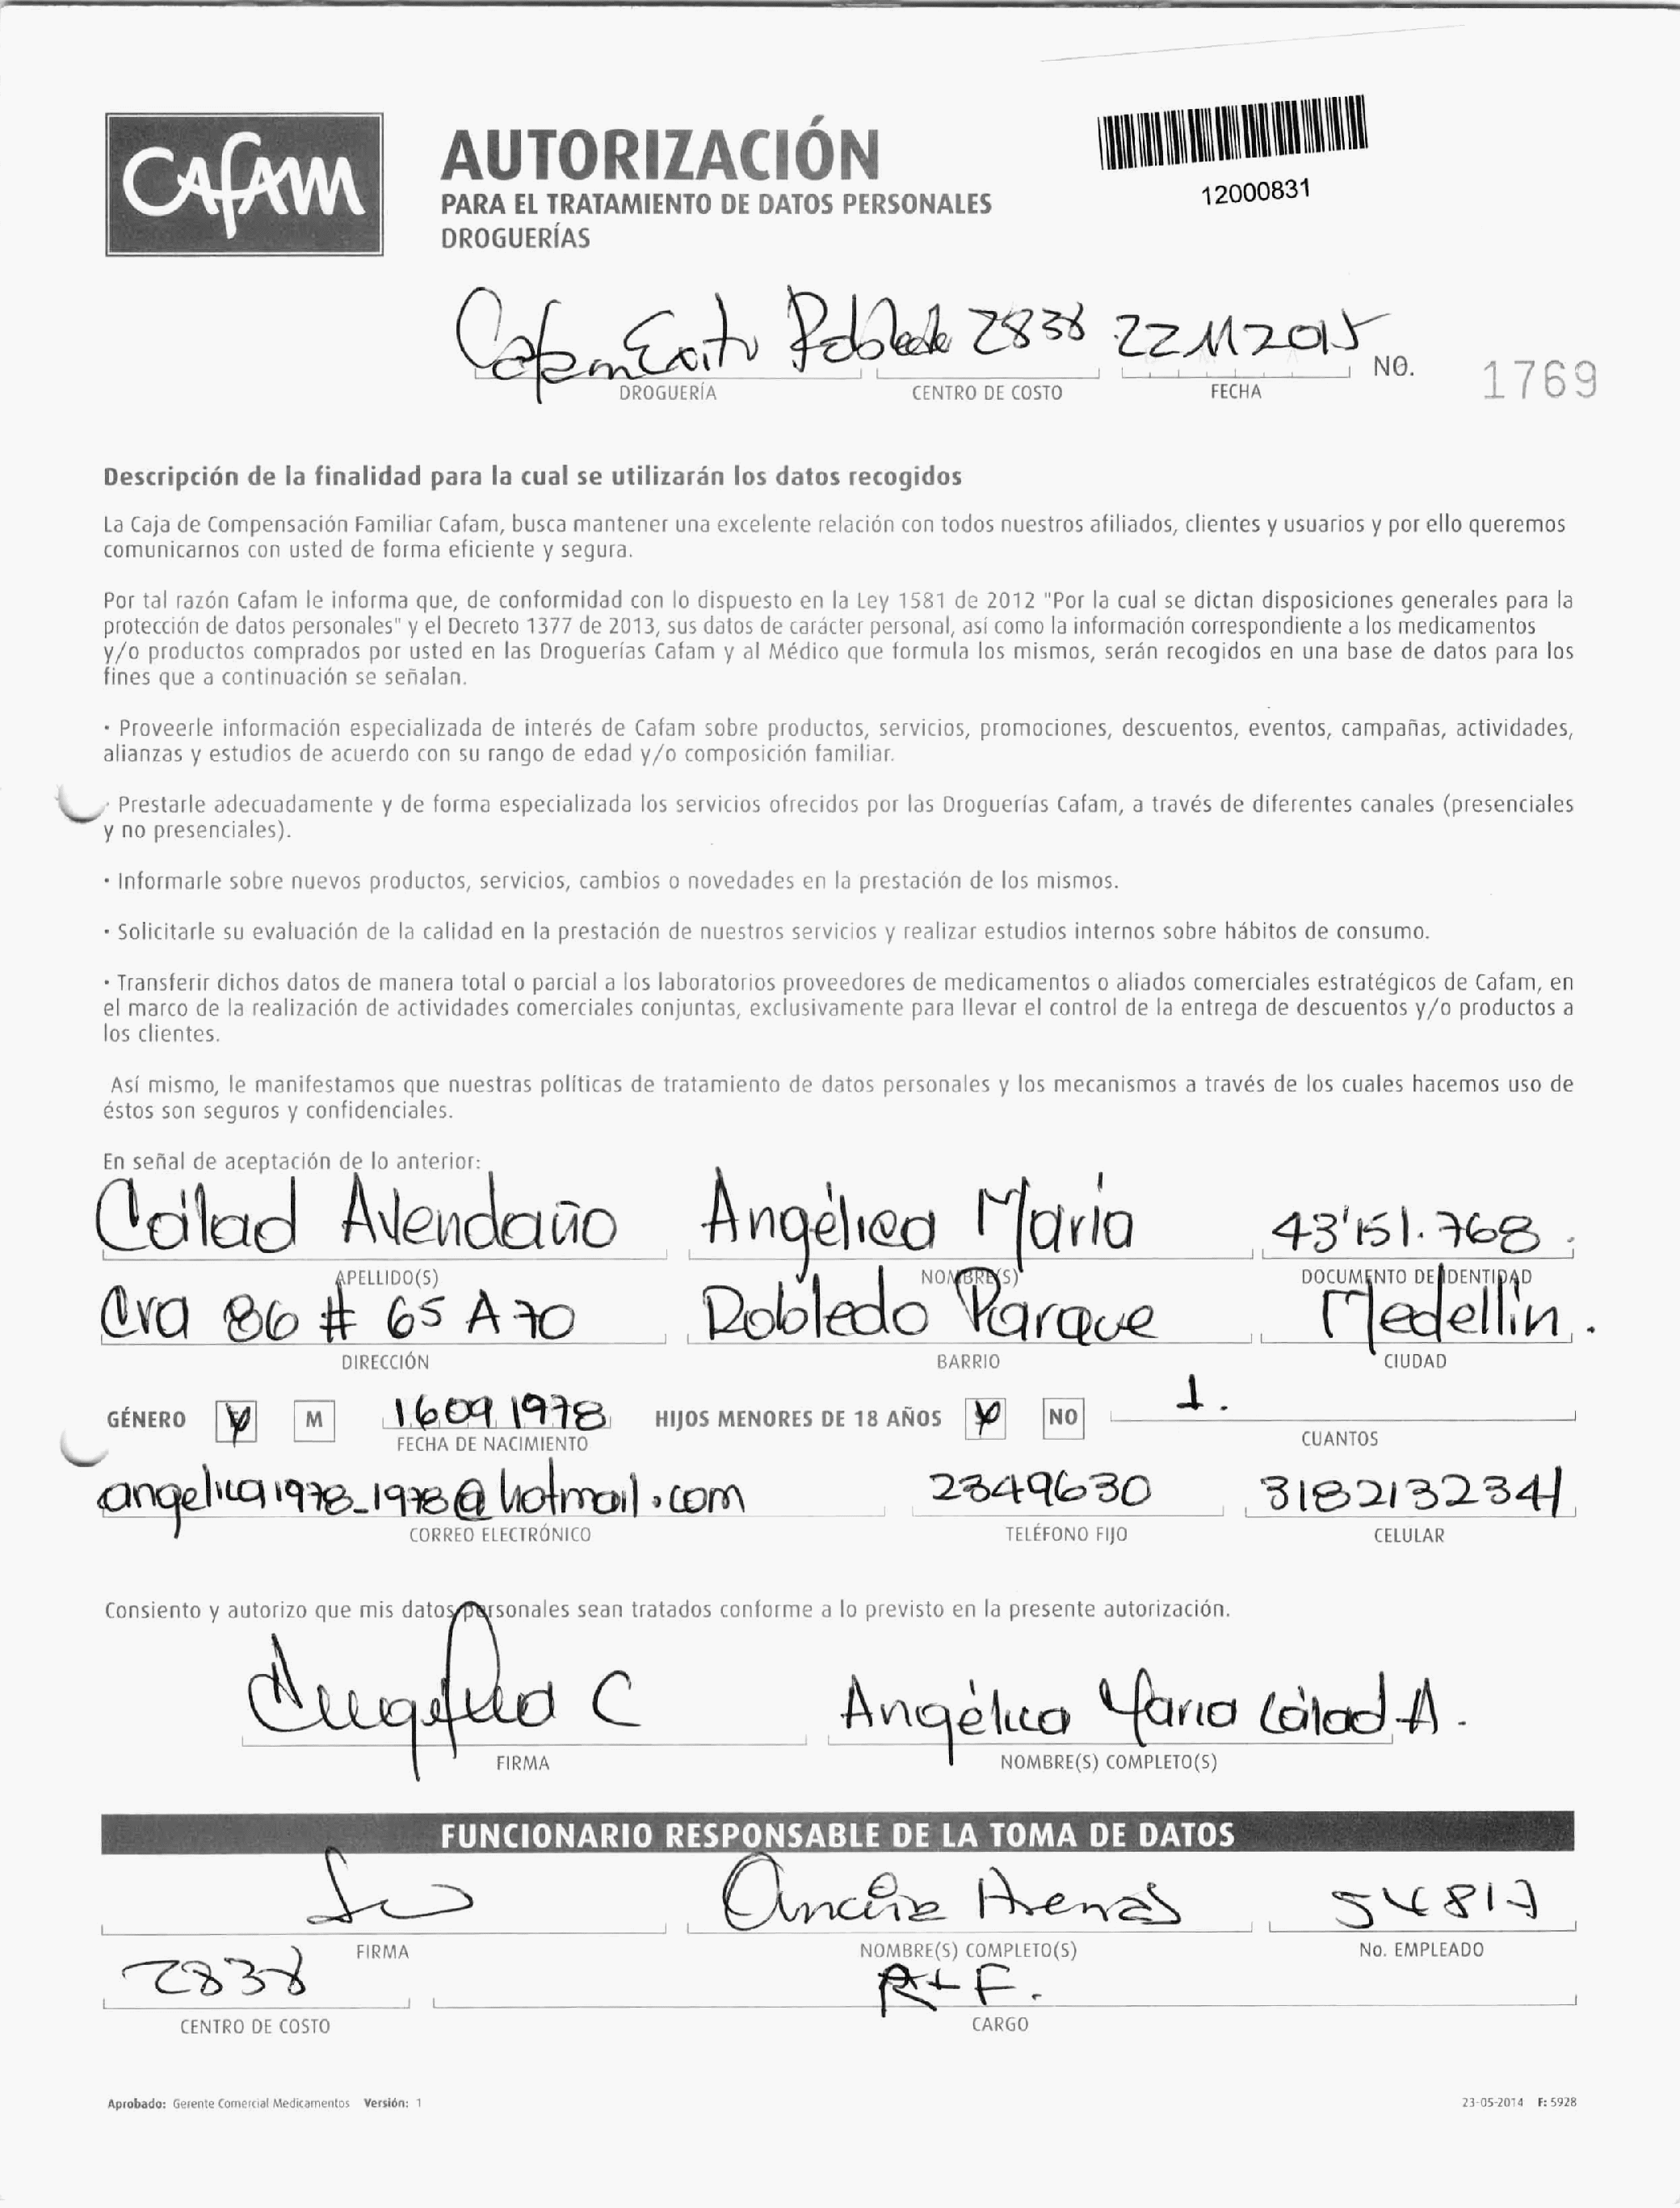 Cafam
AUTORIZACIÓN
PARA EL TRATAMIENTO DE DATOS PERSONALES
DROGUERÍAS
12000831
Cafam Exito Robledo 2838 22112015
DROGUERÍA CENTRO DE COSTO FECHA NO. 1769
Descripción de la finalidad para la cual se utilizarán los datos recogidos
La Caja de Compensación Familiar Cafam, busca mantener una excelente relación con todos nuestros afiliados, clientes y usuarios y por ello queremos
comunicarnos con usted de forma eficiente y segura.
Por tal razón Cafam le informa que, de conformidad con lo dispuesto en la Ley 1581 de 2012 "Por la cual se dictan disposiciones generales para la
protección de datos personales" y el Decreto 1377 de 2013, sus datos de carácter personal, así como la información correspondiente a los medicamentos
y/o productos comprados por usted en las Droguerías Cafam y al Médico que formula los mismos, serán recogidos en una base de datos para los
fines que a continuación se señalan.
· Proveerle información especializada de interés de Cafam sobre productos, servicios, promociones, descuentos, eventos, campañas, actividades,
alianzas y estudios de acuerdo con su rango de edad y/o composición familiar.
· Prestarle adecuadamente y de forma especializada los servicios ofrecidos por las Droguerías Cafam, a través de diferentes canales (presenciales
y no presenciales).
· Informarle sobre nuevos productos, servicios, cambios o novedades en la prestación de los mismos.
· Solicitarle su evaluación de la calidad en la prestación de nuestros servicios y realizar estudios internos sobre hábitos de consumo.
· Transferir dichos datos de manera total o parcial a los laboratorios proveedores de medicamentos o aliados comerciales estratégicos de Cafam, en
el marco de la realización de actividades comerciales conjuntas, exclusivamente para llevar el control de la entrega de descuentos y/o productos a
los clientes.
Así mismo, le manifestamos que nuestras políticas de tratamiento de datos personales y los mecanismos a través de los cuales hacemos uso de
éstos son seguros y confidenciales.
En señal de aceptación de lo anterior:
Cálad Avendaño Angélica María 43'151.768.
APELLIDO(S) NOMBRE(S) DOCUMENTO DE IDENTIDAD
Cra 86 # 65 A 70 Robledo Parque Medellín.
DIRECCIÓN BARRIO CIUDAD
GÉNERO M 16091978 HIJOS MENORES DE 18 AÑOS NO 1.
FECHA DE NACIMIENTO CUANTOS
angelica1978_1978@hotmail.com 2349630 3182132341
CORREO ELECTRÓNICO TELÉFONO FIJO CELULAR
Consiento y autorizo que mis datos personales sean tratados conforme a lo previsto en la presente autorización.
Angélica C Angélica María Cálad A.
FIRMA NOMBRE(S) COMPLETO(S)
FUNCIONARIO RESPONSABLE DE LA TOMA DE DATOS
Arenas
FIRMA NOMBRE(S) COMPLETO(S) No. EMPLEADO
2838 R+F.
CENTRO DE COSTO CARGO
Aprobado: Gerente Comercial Medicamentos Versión: 1 23-05-2014 F: 5928